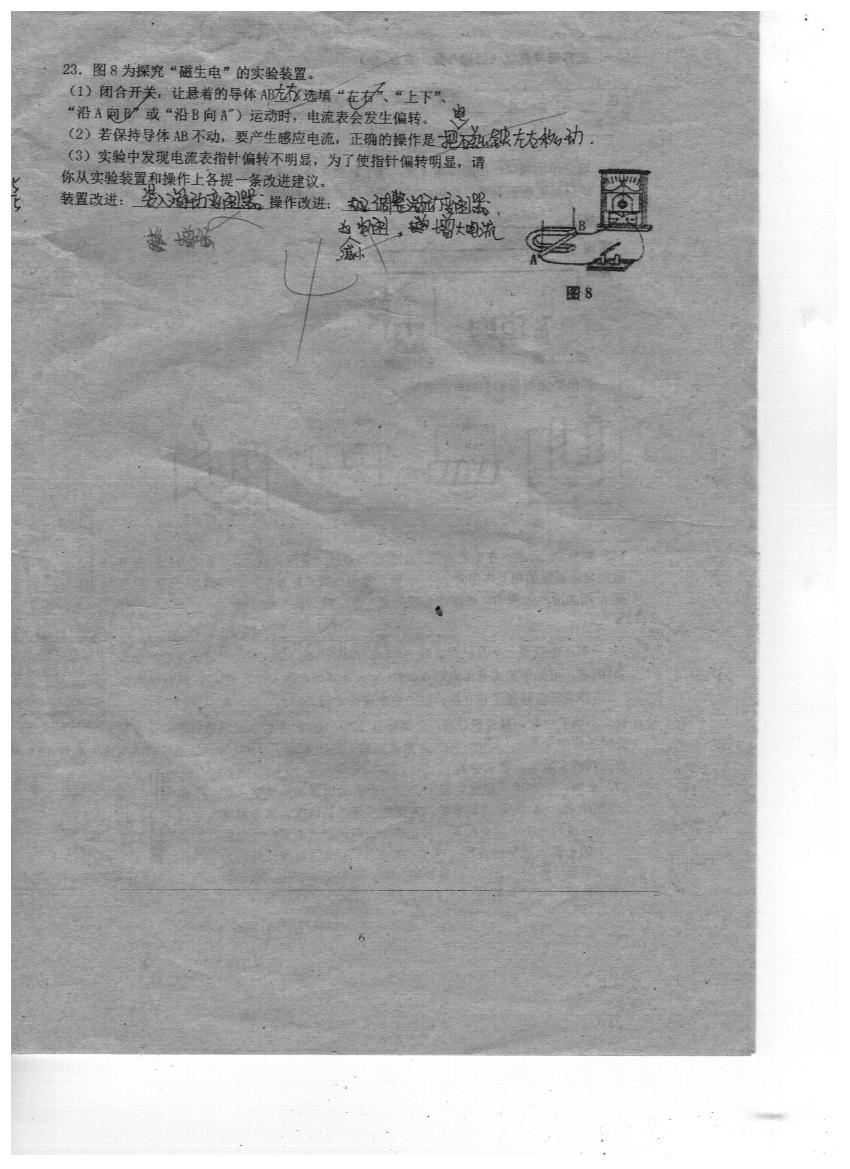 23. 图8为探究“磁生电”的实验装置。
(1) 闭合开关,让悬着的导体AB左右(选填“左右”、“上下”、
“沿A向B”或“沿B向A”)运动时,电流表会发生偏转。
(2) 若保持导体AB不动,要产生感应电流,正确的操作是 把磁铁左右移动.
(3) 实验中发现电流表指针偏转不明显,为了使指针偏转明显,请
你从实验装置和操作上各提一条改进建议。
装置改进: 装入滑动变阻器; 操作改进: 调整滑动变阻器,
增强
为电阻, 增大电流
减小
A
B
图8
6